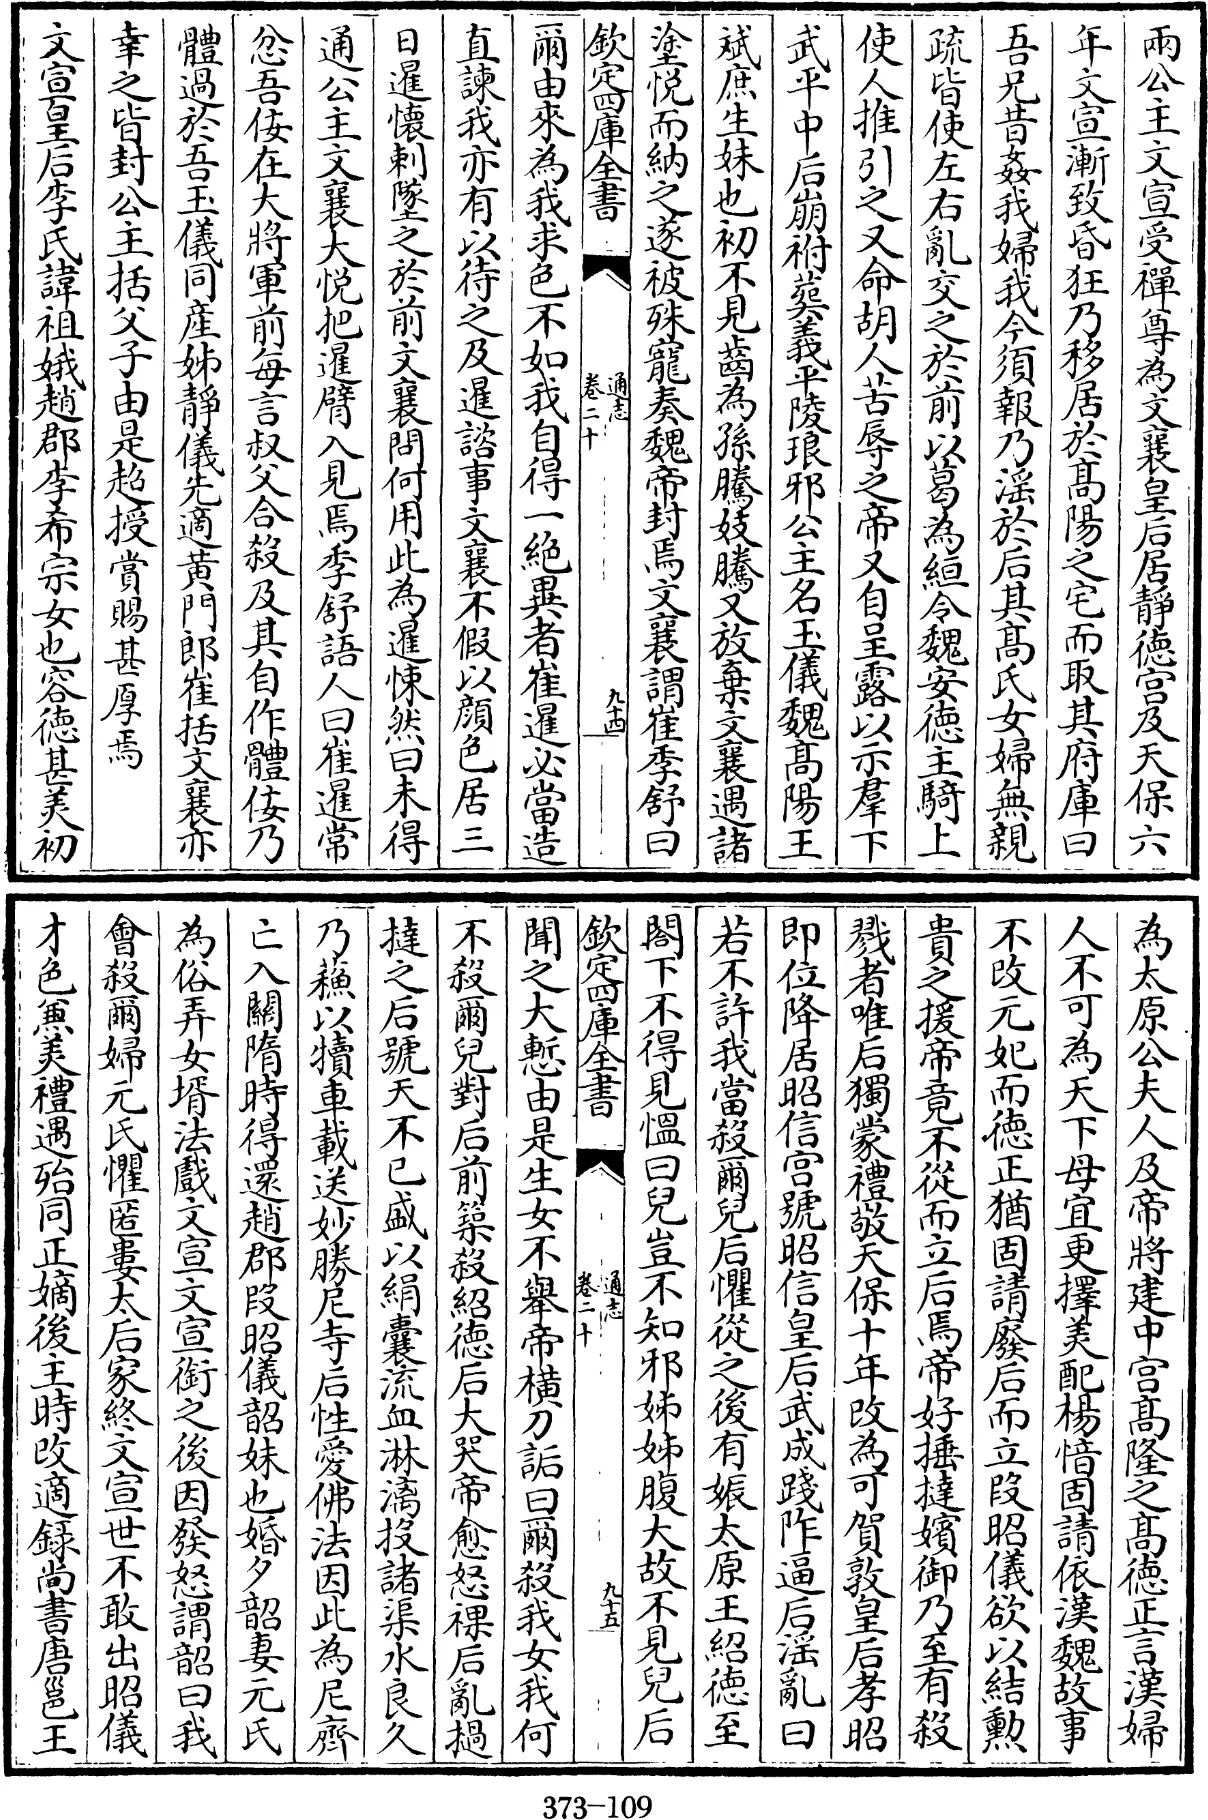 兩公主文宣受禪尊為文襄皇后居靜徳宫及天保六
年文宣漸致昏狂乃移居於髙陽之宅而取其府庫曰
吾兄昔姦我婦我今須報乃淫於后其髙氏女婦無親
疏皆使左右亂交之於前以葛為絙令魏安徳主騎上
使人推引之又命胡人苦辱之帝又自呈露以示羣下
武平中后崩祔葬義平陵琅邪公主名玉儀魏髙陽王
斌庶生妹也初不見齒為孫騰妓騰又放棄文襄遇諸
塗悦而納之遂被殊寵奏魏帝封焉文襄謂崔季舒曰
欽定四庫全書
通志
卷二十
九十四
爾由來為我求色不如我自得一絶異者崔暹必當造
直諫我亦有以待之及暹諮事文襄不假以顔色居三
日暹懷刺墜之於前文襄問何用此為暹悚然曰未得
通公主文襄大悦把暹臂入見焉季舒語人曰崔暹常
忿吾佞在大將軍前每言叔父合殺及其自作體佞乃
體過於吾玉儀同産姊靜儀先適黄門郎崔括文襄亦
幸之皆封公主括父子由是超授賞賜甚厚焉
文宣皇后李氏諱祖娥趙郡李希宗女也容徳甚美初
為太原公夫人及帝將建中宫髙隆之髙徳正言漢婦
人不可為天下母宜更擇美配楊愔固請依漢魏故事
不改元妃而徳正猶固請廢后而立段昭儀欲以結勲
貴之援帝竟不從而立后焉帝好捶撻嬪御乃至有殺
戮者唯后獨蒙禮敬天保十年改為可賀敦皇后孝昭
即位降居昭信宫號昭信皇后武成踐阼逼后淫亂曰
若不許我當殺爾兒后懼從之後有娠太原王紹徳至
閤下不得見愠曰兒豈不知邪姊姊腹大故不見兒后
欽定四庫全書
通志
卷二十
九十五
聞之大慙由是生女不舉帝横刀詬曰爾殺我女我何
不殺爾兒對后前築殺紹徳后大哭帝愈怒裸后亂撾
撻之后號天不已盛以絹囊流血淋漓投諸渠水良久
乃蘇以犢車載送妙勝尼寺后性愛佛法因此為尼齊
亡入關隋時得還趙郡段昭儀韶妹也婚夕韶妻元氏
為俗弄女壻法戲文宣文宣銜之後因發怒謂韶曰我
會殺爾婦元氏懼匿婁太后家終文宣世不敢出昭儀
才色兼美禮遇殆同正嫡後主時改適録尚書唐邕王
373-109